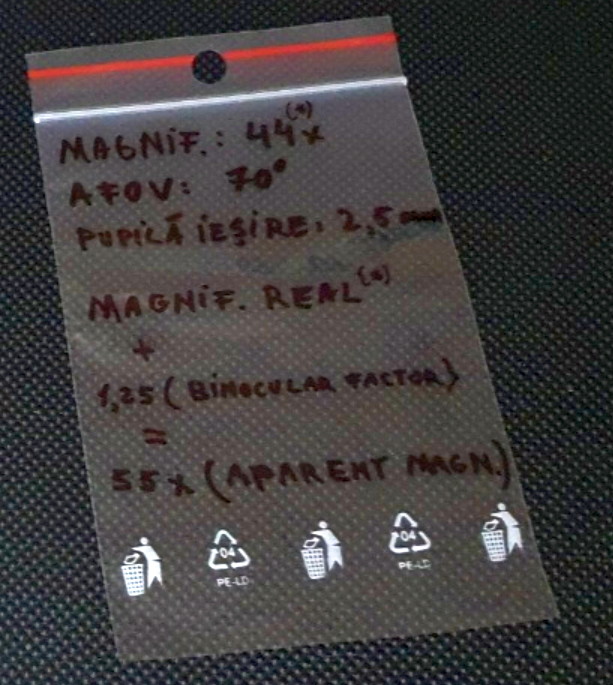 MAGNIF.: 44x(*)
AFOV: 70°
PUPILĂ IEȘIRE: 2,5 mm
MAGNIF. REAL(*)
+
1,25 (BINOCULAR FACTOR)
=
55x (APARENT MAGN.)
04 04
PE-LD PE-LD